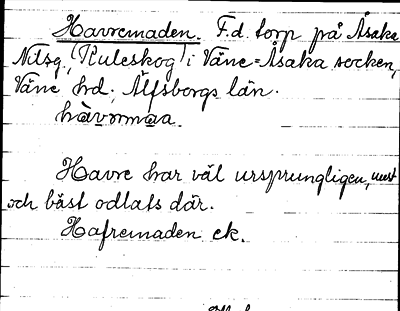 Havremaden. F.d. torp på Åsaka
Nilsg. (Ruleskog) i Väne-Åsaka socken,
Väne hd; Älfsborgs län.
Havre har väl ursprungligen, mest
och bäst odlats där.
Hafremaden ek.